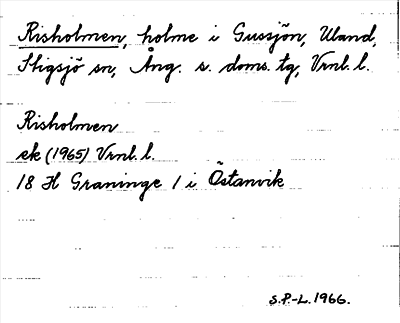 Risholmen, holme i Gussjön, Uland,
Stigsjö sn, Ång. s. doms. tg, Vrnl. l.
Risholmen
ek (1965) Vrnl. l.
18 H Graninge 1 i Östanvik
S.P.-L. 1966.